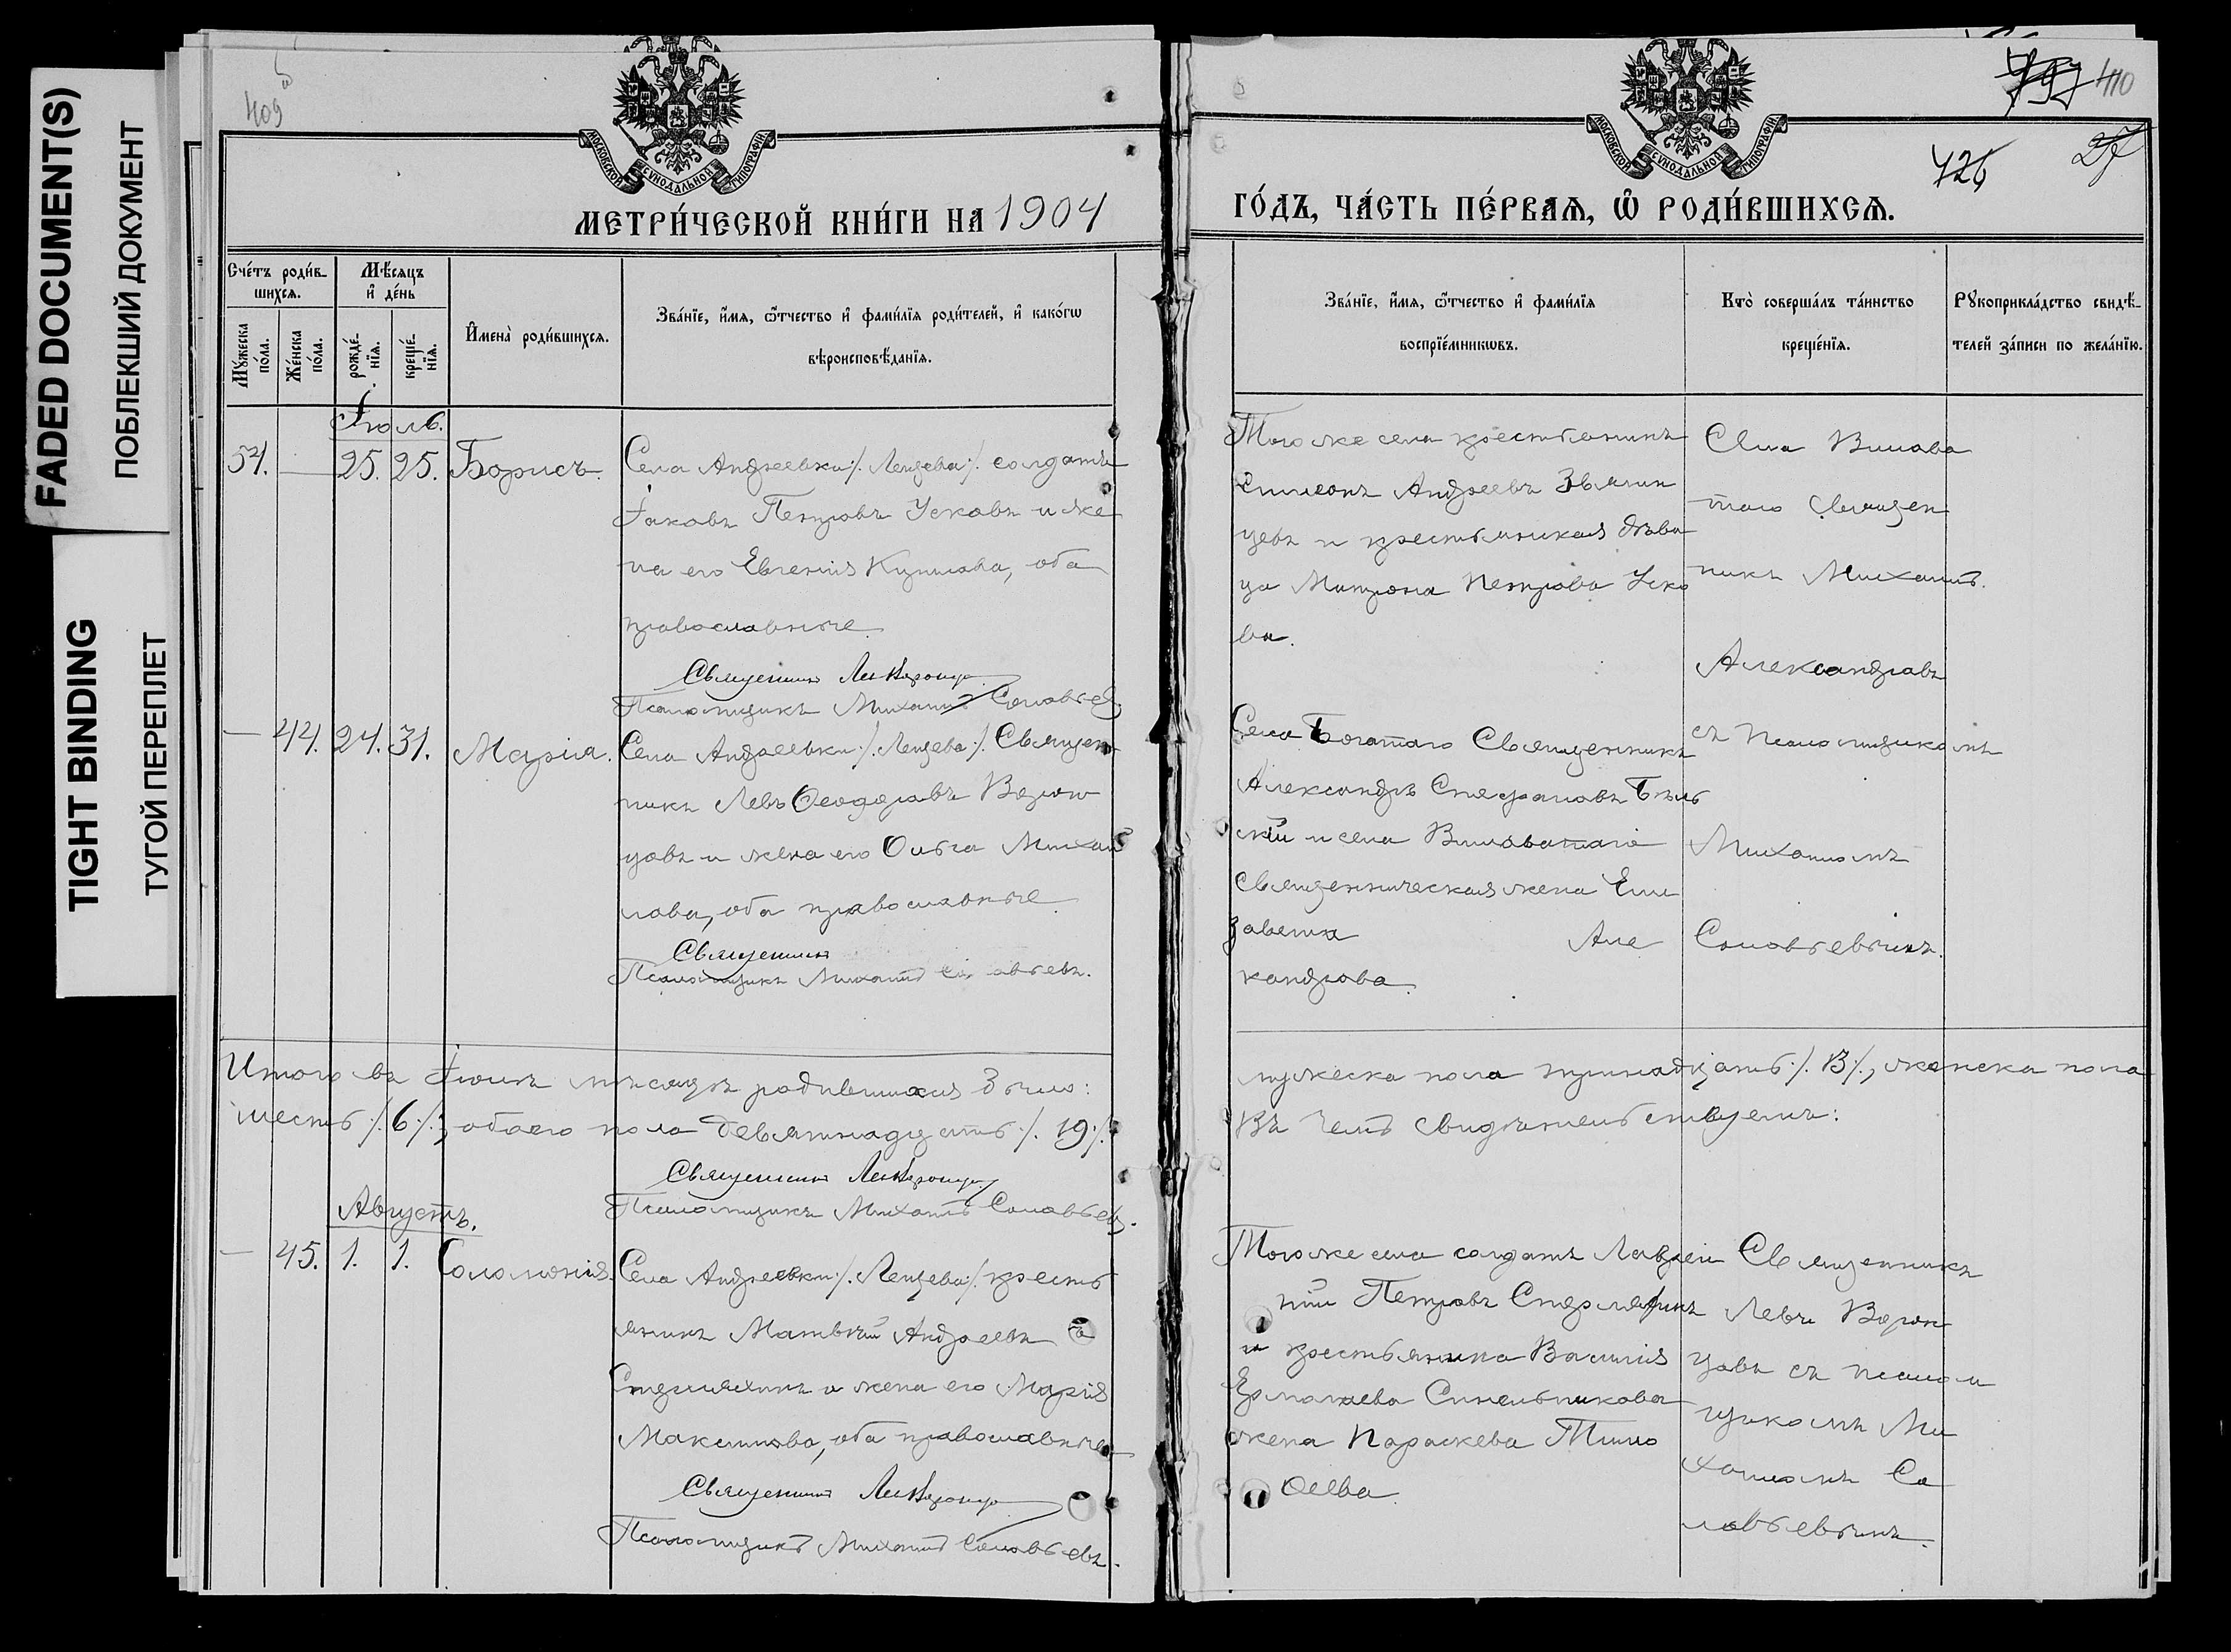 FADED DOCUMENT(S)
ПОБЛЕКШИЙ ДОКУМЕНТ
TIGHT BINDING
ТУГОЙ ПЕРЕПЛЕТ
409
МОСКОВСКОЙ СУНОДАЛЬНОЙ ТИПОГРАФІИ
МЕТРИ́ЧЕСКОЙ КНИ́ГИ НА 1904
Сче́тъ роди́в-
шихсѧ.
Мѣ́сѧцъ
и҆ де́нь
Мꙋ́жеска
по́ла.
Же́нска
по́ла.
рожде́-
нїѧ.
креще́-
нїѧ.
И҆мена̀ роди́вшихсѧ.
Зва́нїе, и҆́мѧ, ѻ҆́тчество и҆ фами́лїѧ роди́телей, и҆ како́гѡ
вѣроисповѣ́данїѧ.
Іюль.
54. — 25. 25. Борисъ.
Села Андреевки /. Лещева /. солдатъ
Іаковъ Петровъ Усковъ и же
на его Евгенія Кузмова, оба
православные.
Священникъ Лев Воронцов
Псаломщикъ Михаилъ Соловьев
— 44. 24. 31. Марія.
Села Андреевки /. Лещева /. Священ
никъ Левъ Ѳеодоровъ Ворон
цовъ и жена его Ольга Михаи
лова, оба православные
Священникъ
Псаломщикъ Михаилъ Соловьевъ.
Итого въ Іюлѣ мѣсяцѣ родившихся было:
шесть /. 6 /., обоего пола девятнадцать /. 19 /.
Священникъ Лев Воронцов
Псаломщикъ Михаилъ Соловьев.
Августъ.
— 45. 1. 1. Соломонія.
Села Андреевки /. Лещева /. кресть
янинъ Матвѣй Андреевъ
Стерляхинъ и жена его Марія
Максимова, оба православные
Священникъ Лев Воронцов
Псаломщикъ Михаилъ Соловьевъ.
410
МОСКОВСКОЙ СУНОДАЛЬНОЙ ТИПОГРАФІИ
726
ГО́ДЪ, ЧА́СТЬ ПЕ́РВАѦ, Ѡ҆ РОДИ́ВШИХСѦ.
Зва́нїе, и҆́мѧ, ѻ҆́тчество и҆ фами́лїѧ
воспрїе́мникѡвъ.
Кто̀ соверша́лъ та́инство
креще́нїѧ.
Рꙋкоприкла́дство свидѣ́-
телей за́писи по жела́нїю.
Того же села крестьянинъ
Симеонъ Андреевъ Звягин
цевъ и крестьянская дѣви
ца Матрона Петрова Уско
ва.
Села Вилова
таго Священ
никъ Михаилъ
Александровъ
съ Псаломщикомъ
Михаиломъ
Соловьевымъ.
Села Богатаго Священникъ
Александръ Стефановъ Бѣль
скій и села Виловатаго
священническая жена Ели
завета Але
кандрова.
мужеска пола тринадцать /. 13 /., женска пола
въ чемъ свидѣтельствуемъ:
Того же села солдатъ Лаврен
тій Петровъ Стерляхинъ
и крестьянина Василія
Ермолаева Синельникова
жена Параскева Тимо
ѳеева.
Священникъ
Левъ Ворон
цовъ съ псалом
щикомъ Ми
хаиломъ Со
ловьевымъ.